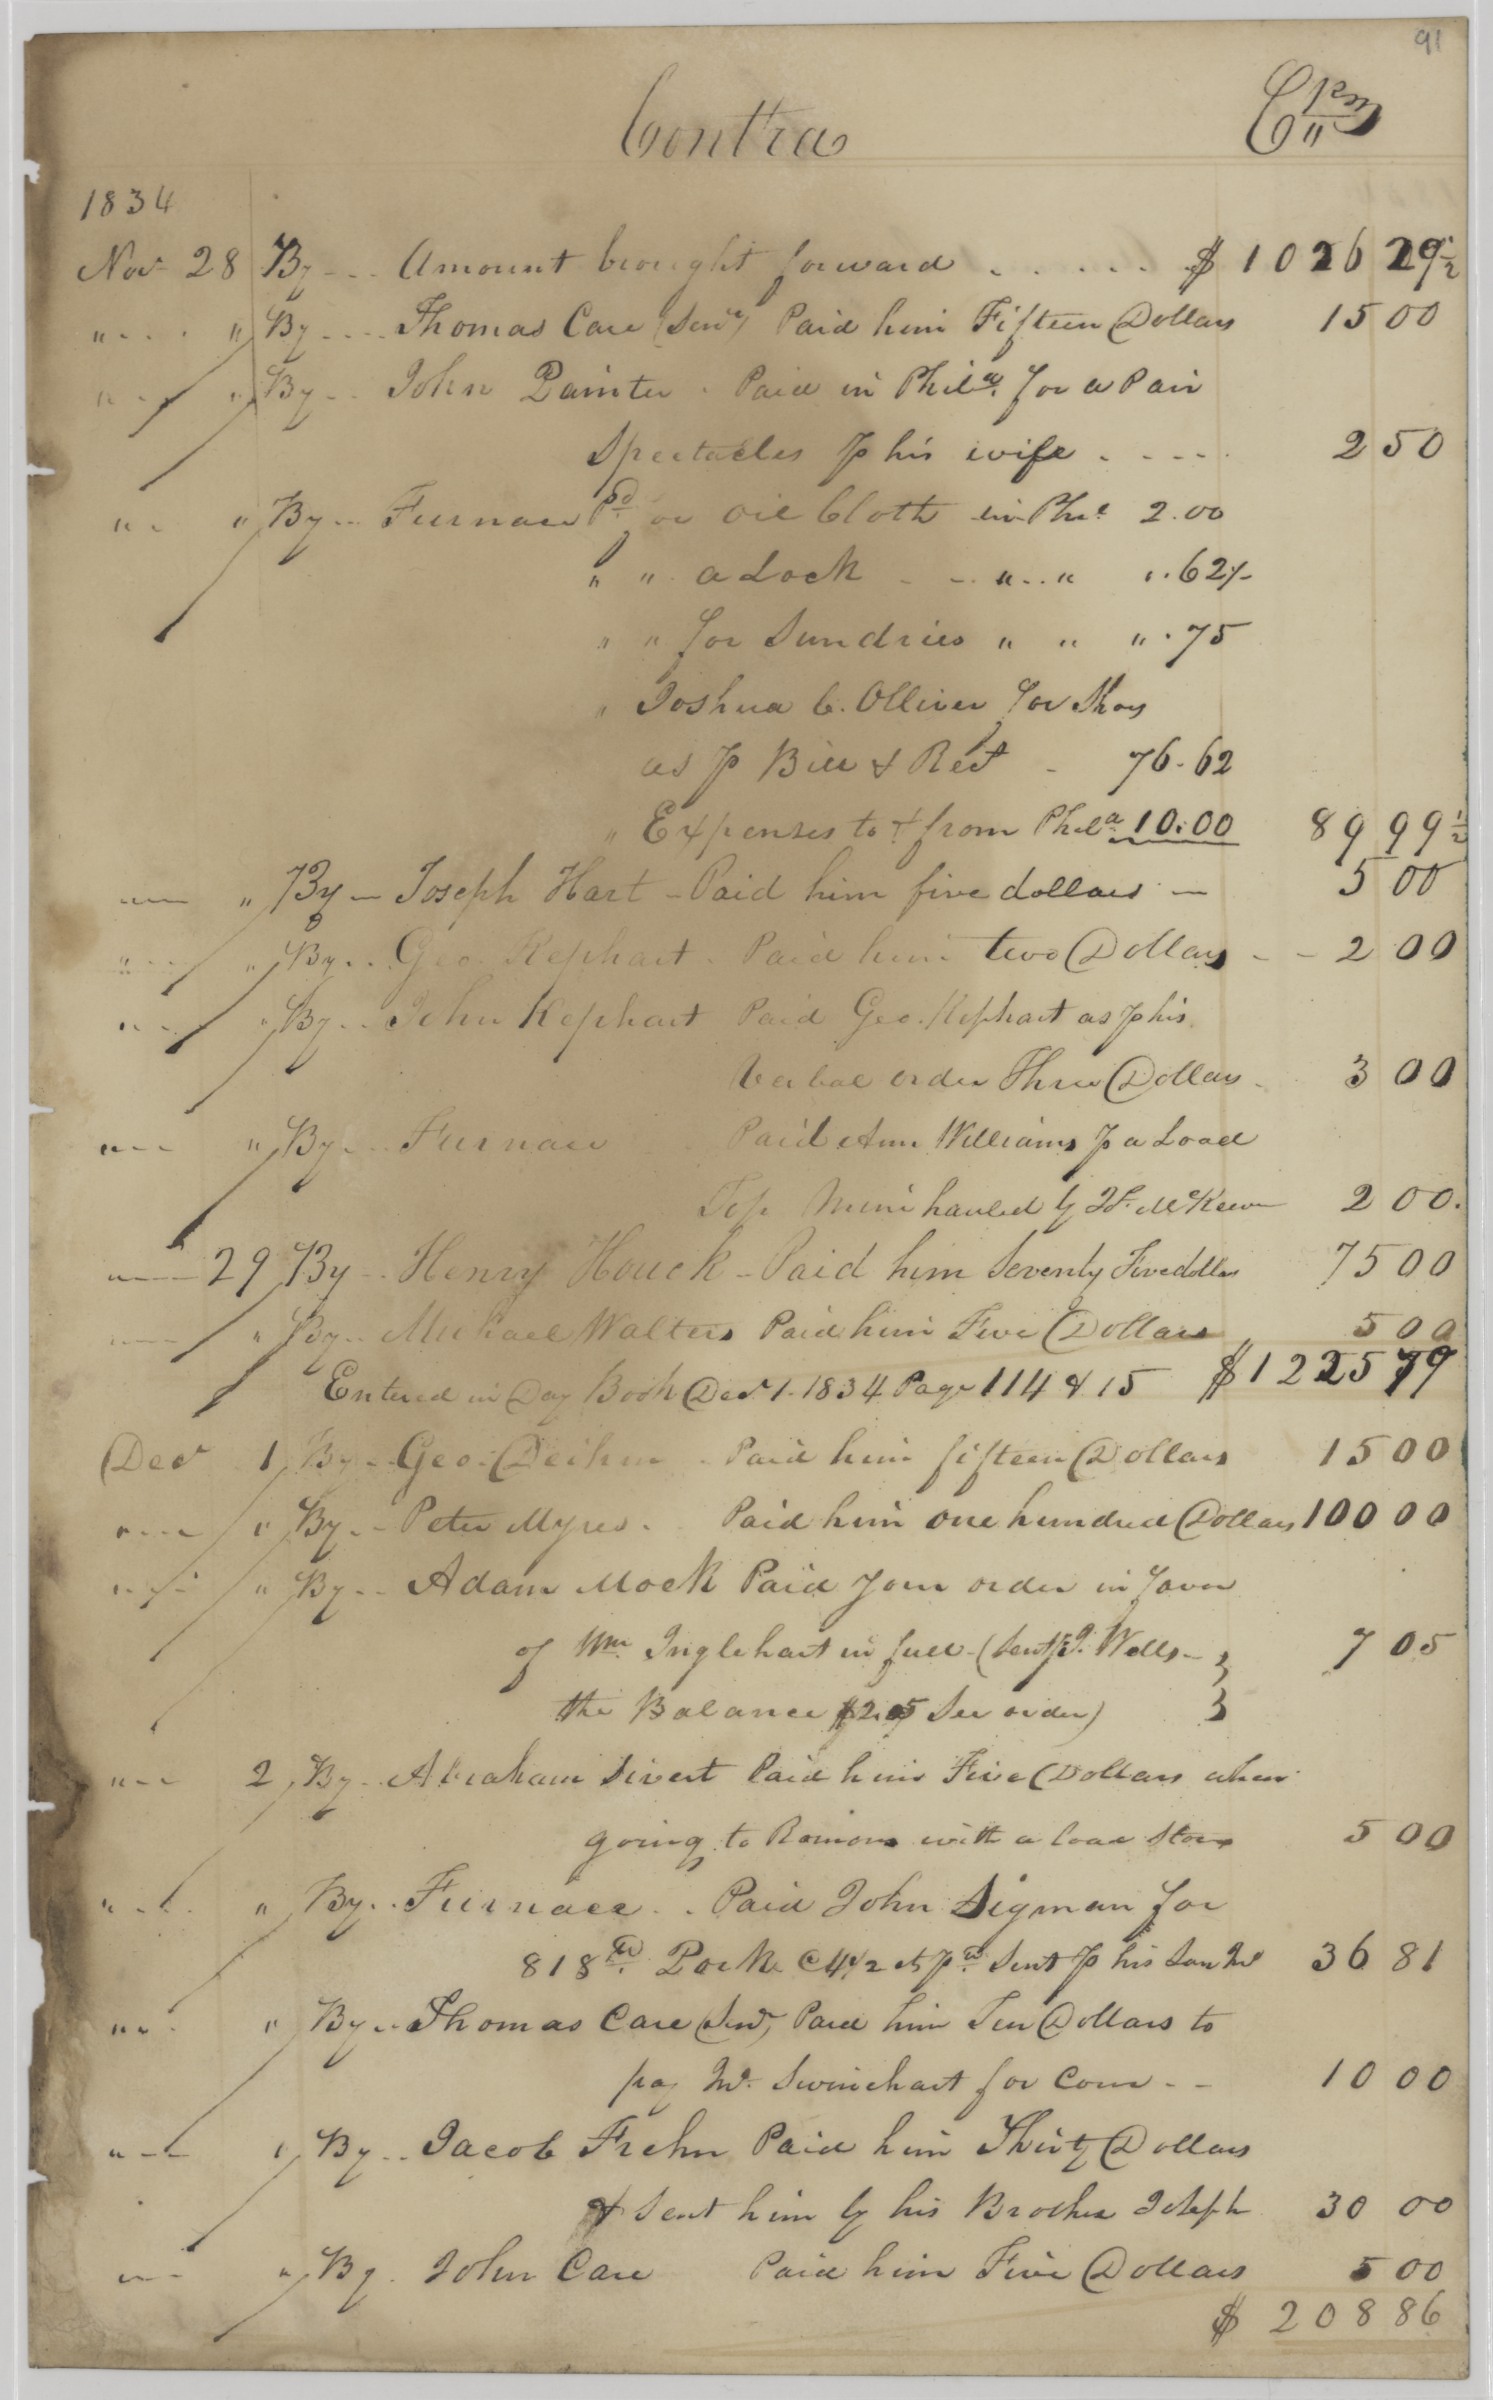 91
Contra Cr
1834
Nov 28 By Amount brought forward . . . . . $ 1026 29½
" " By Thomas Care (Senr) Paid him Fifteen Dollars 15 00
" " By John Painter . Paid in Phila. for a Pair
Spectacles p his wife . - - - 2 50
" " By Furnace Pd or Oil Cloth in Phil 2.00
" " a Lock - - " " .62½
" " for Sundries " " " .75
" Joshua C. Olliver for Shoes
as p Bill & Rect - 76.62
" Expenses to & from Phila 10.00 89 99½
" " By Joseph Hart - Paid him five dollars - 5 00
" " By Geo. Kephart . Paid him two Dollars - - 2 00
" " By John Kephart Paid Geo. Kephart as p his
Verbal order Three Dollars 3 00
" " By Furnace Paid Ann Williams p a Load
Top Mine hauled by McKeen 2 00.
" 29 By Henry Houck - Paid him Seventy Five dollars 75 00
" " By Michael Walters Paid him Five Dollars 5 00
Entered in Day Book Decr 1. 1834 Page 114 & 15 $1225 79
Decr 1 By Geo. Deihm . Paid him fifteen Dollars 15 00
" " By Peter Myres . Paid him one hundred Dollars 100 00
" " By Adam Mock Paid your order in favor
of Wm. Inglehart in full - (Sent p J. Wells - } 7 05
the Balance $2.05 See order) }
" 2 By Abraham Sivert Paid him Five Dollars when
going to with a load Stoves 5 00
" " By Furnace . . Paid John Sigman for
818 lb. Pork @ 4½ cts p lb. Sent p his Son Jno 36 81
" " By Thomas Care (Senr) Paid him Ten Dollars to
pay Jno. Swinehart for Corn - - 10 00
" " By Jacob Frehn Paid him Thirty Dollars
& Sent him by his Brother Joseph 30 00
" " By John Care Paid him Five Dollars 5 00
$ 208 86